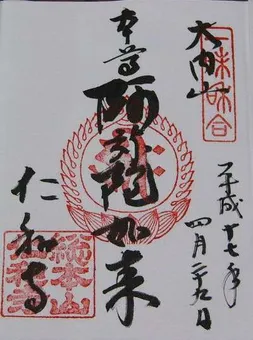 一味和合
大内山
平成十七年
四月二十九日
本尊
阿弥陀如来
総本山
仁和寺